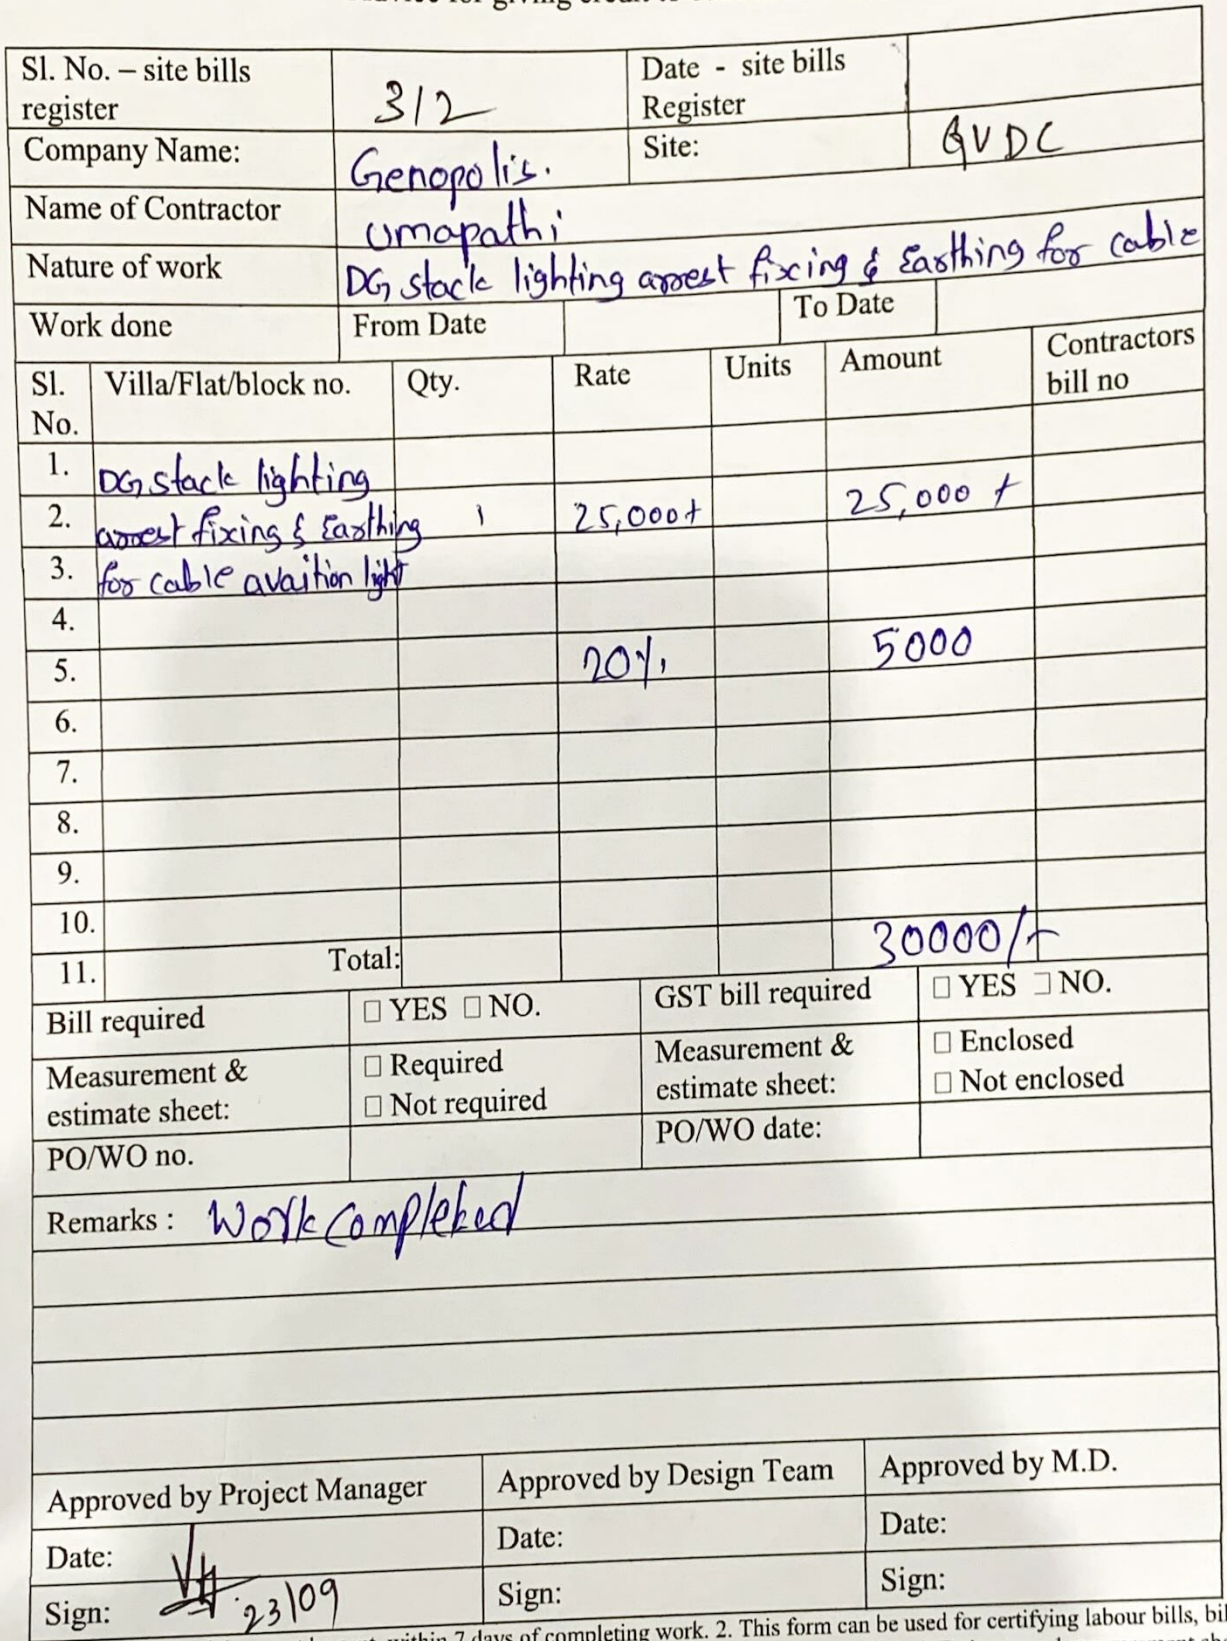 Sl. No. – site bills register 312 Date - site bills Register
Company Name: Genopolis. Site: GVDC
Name of Contractor Umapathi
Nature of work DG stack lighting arrest fixing & Earthing for cable
Work done From Date To Date
Sl. No. Villa/Flat/block no. Qty. Rate Units Amount Contractors bill no
1. DG stack lighting
2. arrest fixing & Earthing 1 25,000+ 25,000 +
3. for cable avaition light
4.
5. 20% 5000
6.
7.
8.
9.
10.
11. Total: 30000/-
Bill required □ YES □ NO. GST bill required □ YES □ NO.
Measurement & estimate sheet: □ Required □ Not required Measurement & estimate sheet: □ Enclosed □ Not enclosed
PO/WO no. PO/WO date:
Remarks : Work completed
Approved by Project Manager Approved by Design Team Approved by M.D.
Date: Date: Date:
Sign: 23/09 Sign: Sign:
within 7 days of completing work. 2. This form can be used for certifying labour bills,